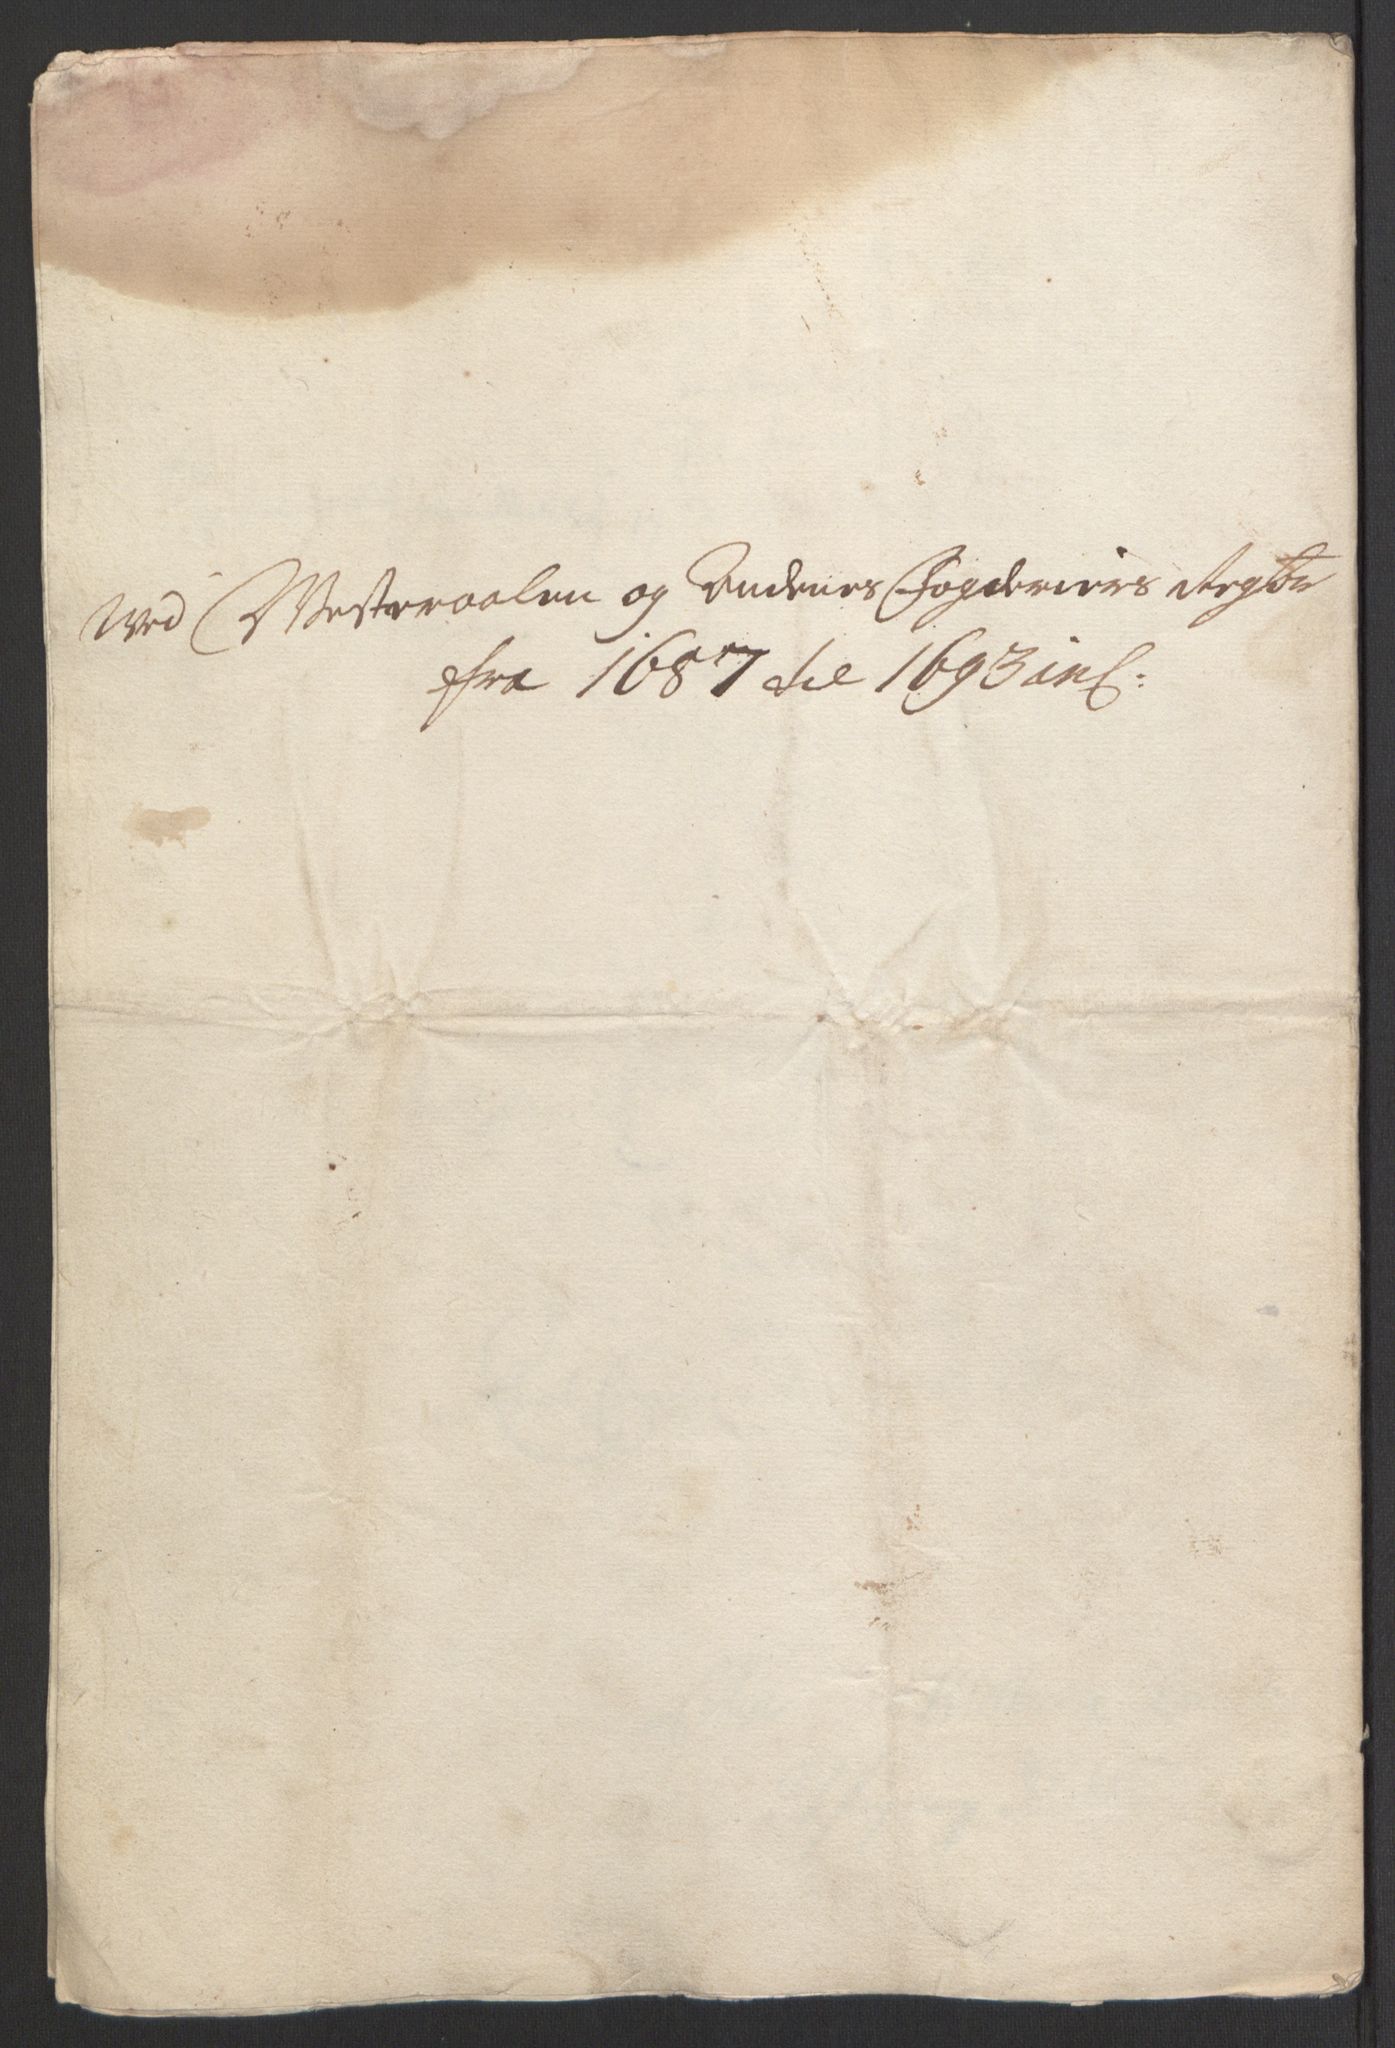 Ved Westeraalen og Andenes Fogderiers Regsk
fra 1687 til 1693 incl: